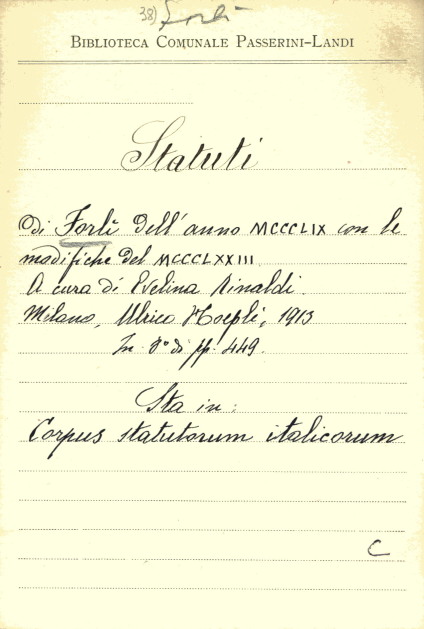 38) Forlì
BIBLIOTECA COMUNALE PASSERINI-LANDI
Statuti
di Forlì dell'anno MCCCLIX con le
modifiche del MCCCLXXIII.
A cura di Evelina Rinaldi.
Milano, Ulrico Hoepli, 1913
In 8° di pp. 449.
Sta in:
Corpus statutorum italicorum
C